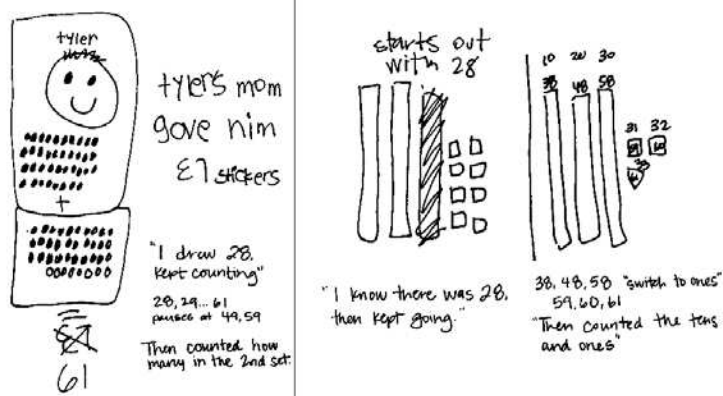 tyler
tyler's mom
gave him
stickers
+
"I draw 28,
kept counting"
28, 29... 61
pauses at 49, 59
Then counted how
many in the 2nd set.
=
61
starts out
with 28
"I know there was 28,
then kept going."
10 20 30
38 48 58
31 32
33
38, 48, 58 "switch to ones"
59, 60, 61
"Then counted the tens
and ones"